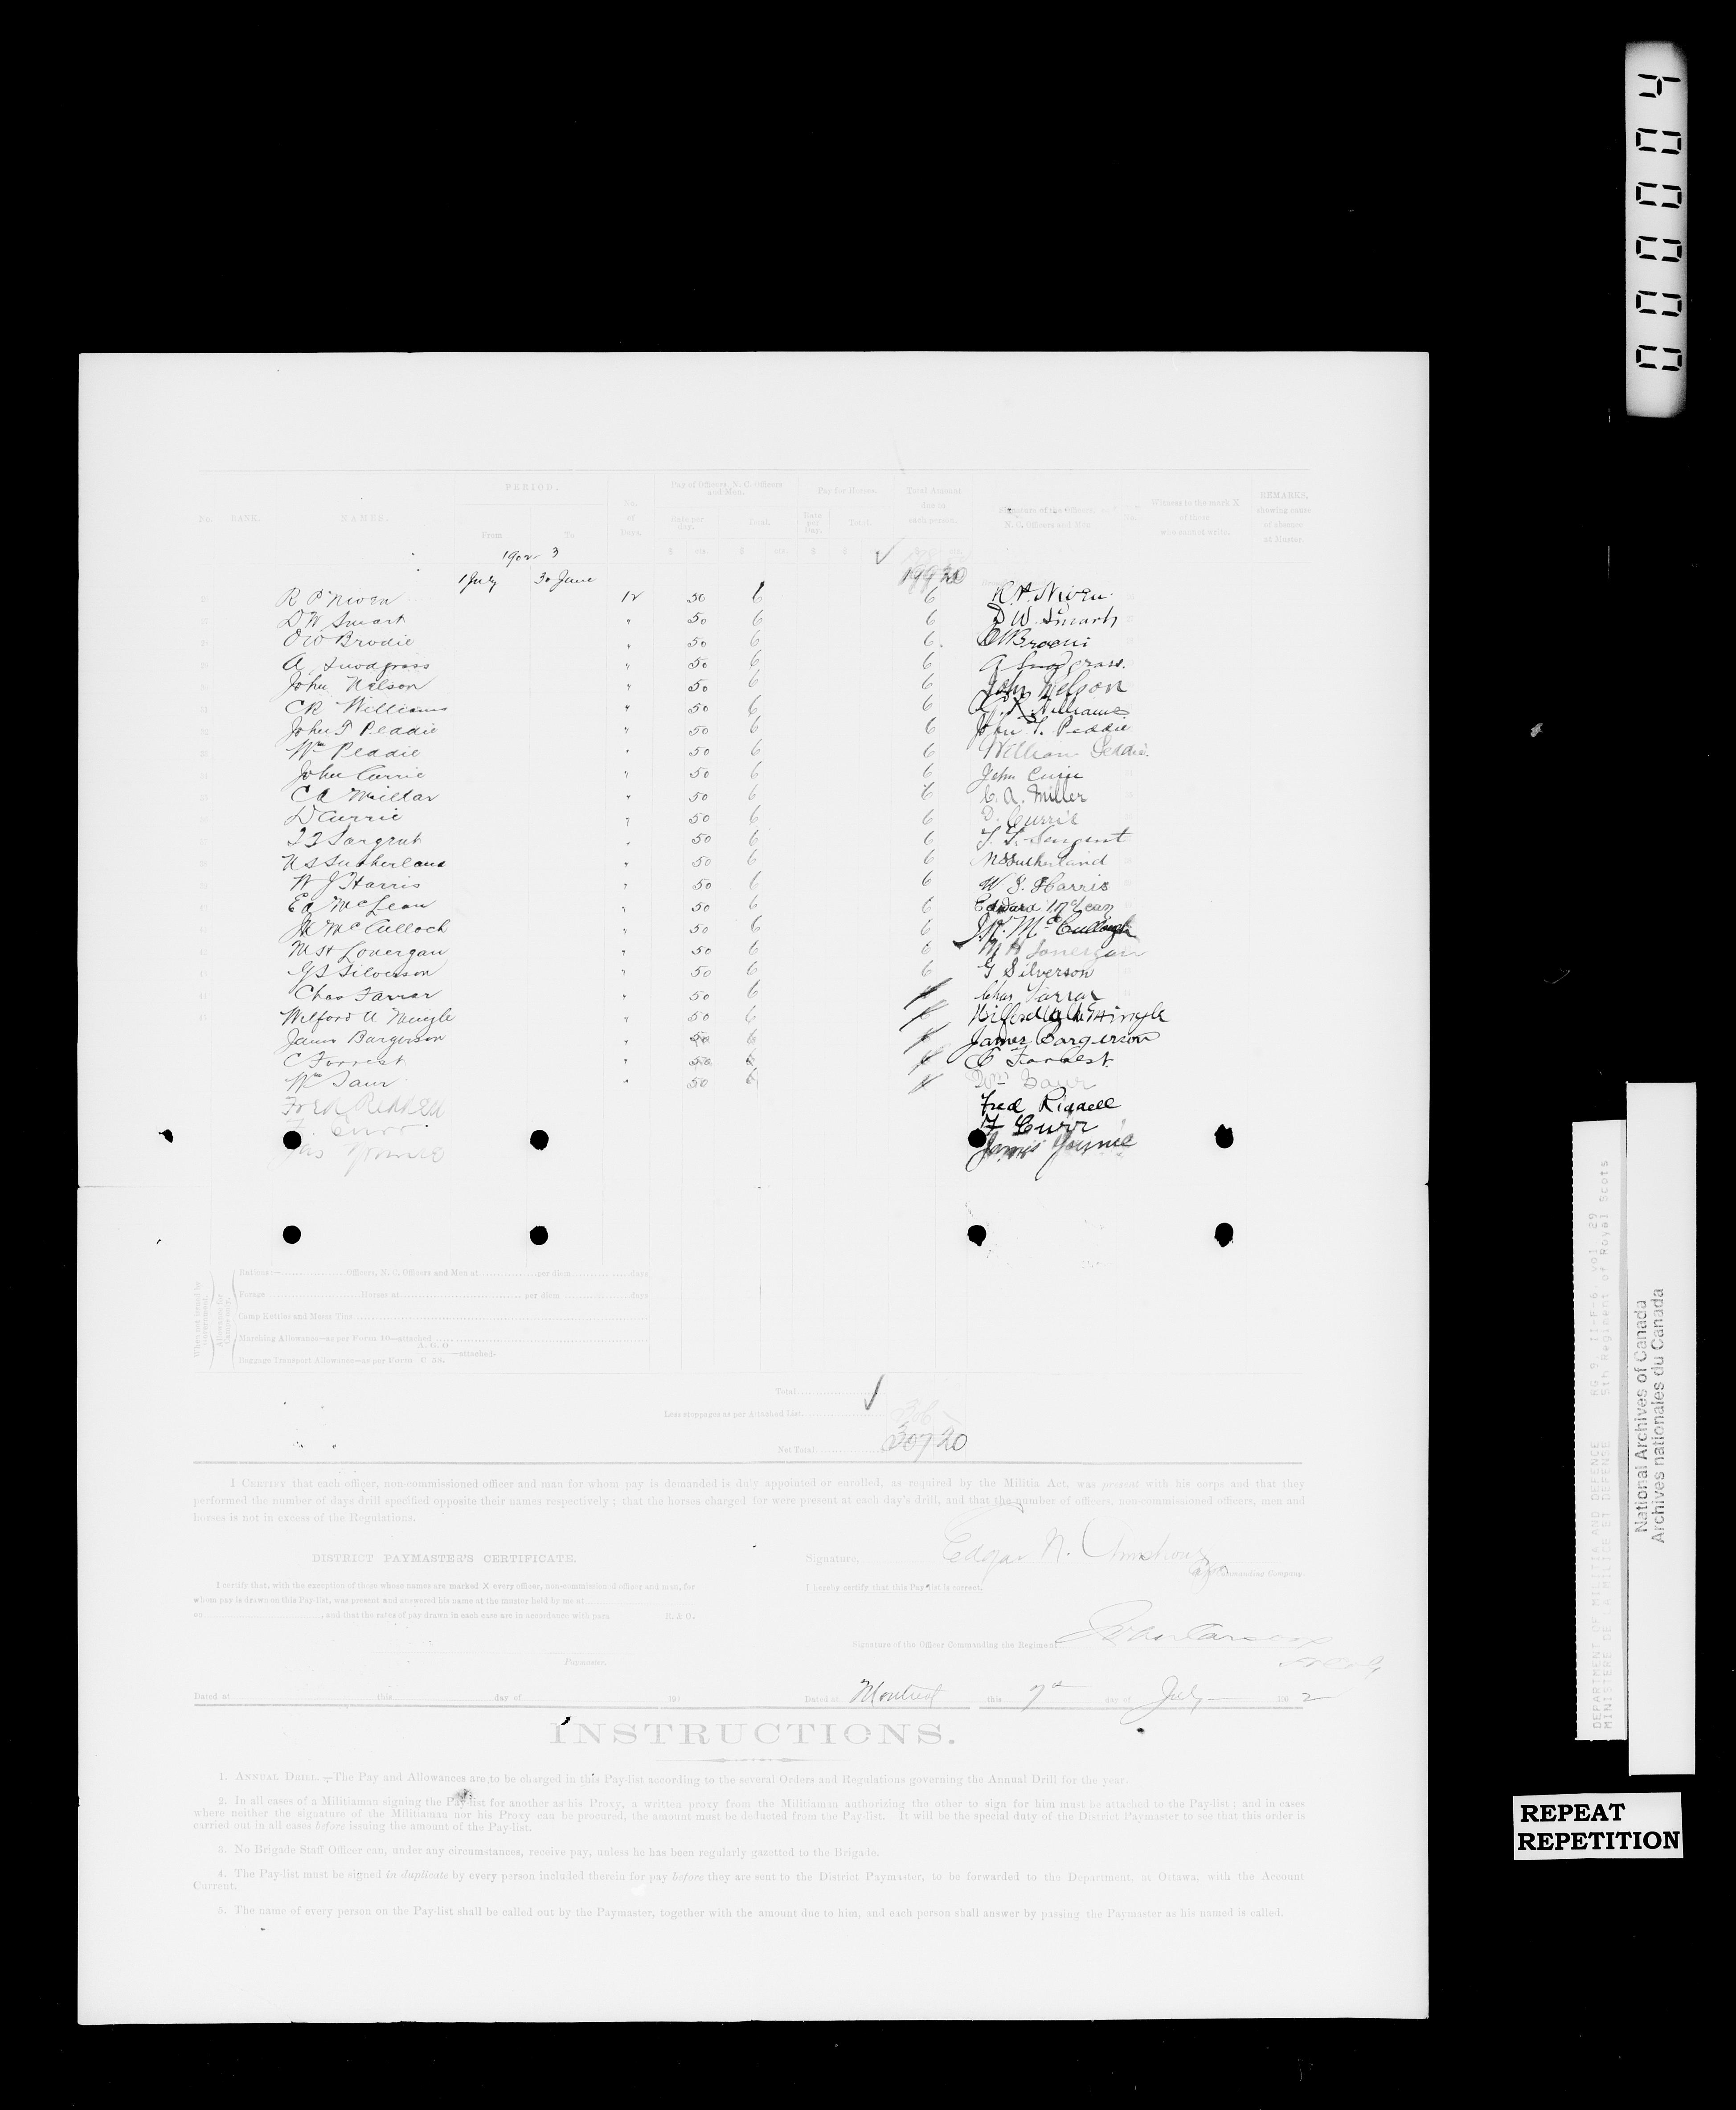 No. RANK. NAMES. PERIOD. From To No. of Days. Pay of Officers, N. C. Officers and Men. Rate per day. Total. $ cts. $ cts. Pay for Horses. Rate per Day. Total. Total Amount due to each person. Signature of the Officers, N. C. Officers and Men Witness to the mark X of those who cannot write. REMARKS, showing cause of absence at Muster.
1902 3
1 July 30 June 199 20
R P Niven 12 50 6 6 R. P. Niven
D W Smart " 50 6 6 D W. Smart
O W Brodie " 50 6 6 O W Brodie
A. Snodgrass " 50 6 6 A Snodgrass.
John Nelson " 50 6 6 John Nelson
C R Williams " 50 6 6 C. R. Williams
John T Peddie " 50 6 6 John T. Peddie
Wm Peddie " 50 6 6 William Peddie.
John Currie " 50 6 6 John Currie
C A Millar " 50 6 6 C. A. Miller
D Currie " 50 6 6 D. Currie
Sargent " 50 6 6 Sargent
N S Sutherland " 50 6 6 N S Sutherland
W J Harris " 50 6 6 W J. Harris
Ed McLean " 50 6 6 Edward McLean
J K McCulloch " 50 6 6 J. K. McCullough
M H Lonergan " 50 6 6 M H Lonergan
G S Silverson " 50 6 6 G Silverson
Chas Farrar " 50 6 Chas Farrar
Wilford " 50 6 Wilford
James Bargerson " 50 6 James Bargerson
C Forrest " 50 6 C Forrest.
Wm " 50 6 Wm
Fred Riddell Fred Riddell
F. Curr. F Curr
Jas Younie James Younie
When not issued by Government. Allowance for Camps only.
Rations:— Officers, N. C. Officers and Men at per diem days
Forage Horses at per diem days
Camp Kettles and Messer Tins
Marching Allowance—as per Form 10—attached
Baggage Transport Allowance—as per Form A. G. O —attached-
Total
Less stoppages as per Attached List
Net Total 307 20
I CERTIFY that each officer, non-commissioned officer and man for whom pay is demanded is duly appointed or enrolled, as required by the Militia Act, was present with his corps and that they
performed the number of days drill specified opposite their names respectively; that the horses charged for were present at each day's drill, and that the number of officers, non-commissioned officers, men and
horses is not in excess of the Regulations.
DISTRICT PAYMASTER'S CERTIFICATE.
I certify that, with the exception of those whose names are marked X every officer, non-commissioned officer and man, for
whom pay is drawn on this Pay-list, was present and answered his name at the muster held by me at
on , and that the rates of pay drawn in each case are in accordance with para. R. & O.
Paymaster.
Dated at this day of 191
Signature, Edgar N. Armstrong Capt Commanding Company.
I hereby certify that this Pay list is correct.
Signature of the Officer Commanding the Regiment
Dated at Montreal this 7th day of July 190 2
INSTRUCTIONS.
1. ANNUAL DRILL.—The Pay and Allowances are to be charged in this Pay-list according to the several Orders and Regulations governing the Annual Drill for the year.
2. In all cases of a Militiaman signing the Pay-list for another as his Proxy, a written proxy from the Militiaman authorizing the other to sign for him must be attached to the Pay-list; and in cases
where neither the signature of the Militiaman nor his Proxy can be procured, the amount must be deducted from the Pay-list. It will be the special duty of the District Paymaster to see that this order is
carried out in all cases before issuing the amount of the Pay-list.
3. No Brigade Staff Officer can, under any circumstances, receive pay, unless he has been regularly gazetted to the Brigade.
4. The Pay-list must be signed in duplicate by every person included therein for pay before they are sent to the District Paymaster, to be forwarded to the Department, at Ottawa, with the Account
Current.
5. The name of every person on the Pay-list shall be called out by the Paymaster, together with the amount due to him, and each person shall answer by passing the Paymaster as his named is called.
000004
DEPARTMENT OF MILITIA AND DEFENCE RG 9, II-F-6, vol. 29
MINISTERE DE LA MILICE ET DEFENSE 5th Regiment of Royal Scots
National Archives of Canada
Archives nationales du Canada
REPEAT
REPETITION